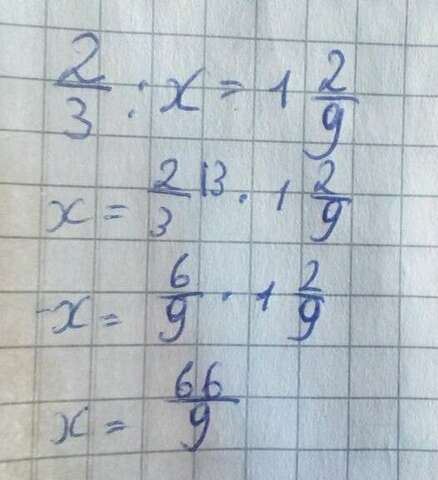 2/3 : x = 1 2/9
x = 2/3 |3 · 1 2/9
-x = 6/9 · 1 2/9
x = 66/9